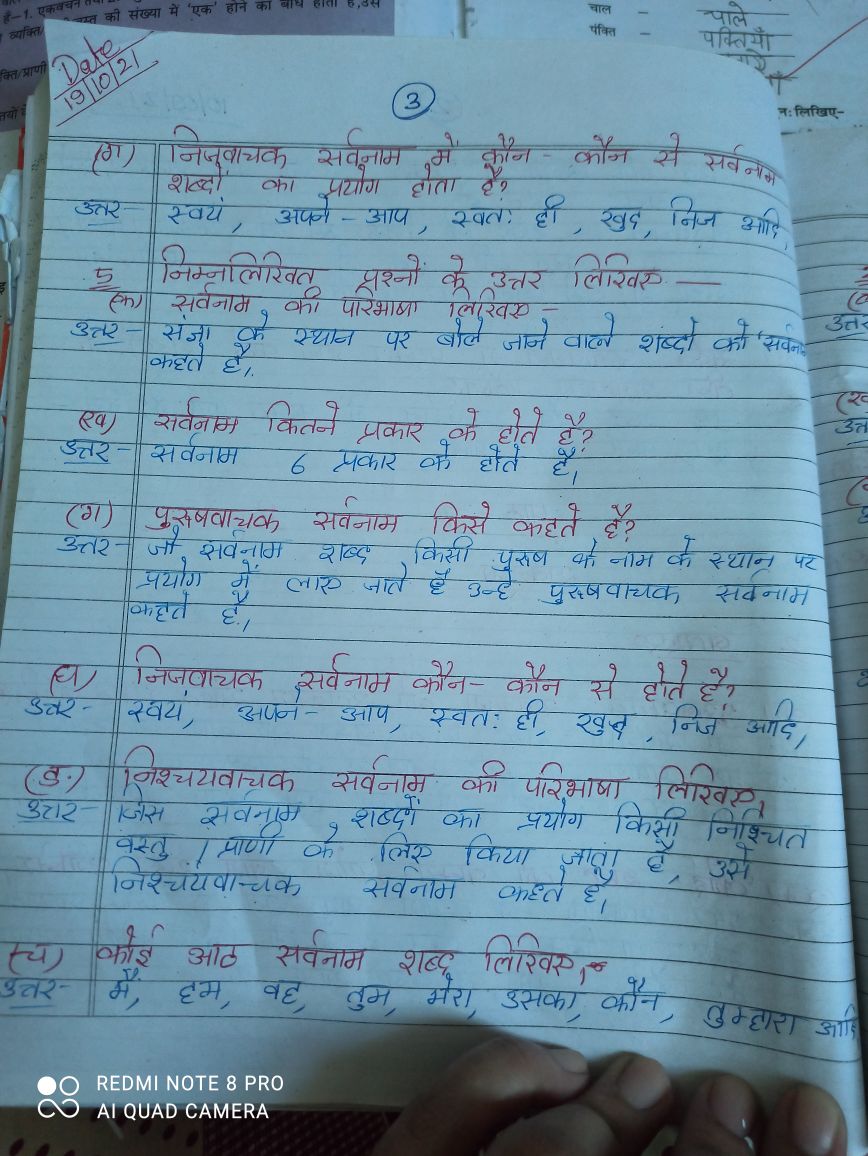 है–1. एकवचन
की संख्या में 'एक' होने का बोध होता है, उसे
चाल –
चाले
पंक्ति –
पंक्तियाँ
नः लिखिए–
Date
19/10/21
3
(ग) निजवाचक सर्वनाम में कौन - कौन से सर्वनाम
शब्दों का प्रयोग होता है?
उत्तर - स्वयं, अपने - आप, स्वतः ही, खुद, निज आदि,
5 निम्नलिखित प्रश्नों के उत्तर लिखिए —
(क) सर्वनाम की परिभाषा लिखिए -
उत्तर - संज्ञा के स्थान पर बोले जाने वाले शब्दों को 'सर्वनाम
कहते है।
(ख) सर्वनाम कितने प्रकार के होते है?
उत्तर - सर्वनाम 6 प्रकार के होते है।
(ग) पुरुषवाचक सर्वनाम किसे कहते है?
उत्तर - जो सर्वनाम शब्द किसी पुरुष के नाम के स्थान पर
प्रयोग में लाए जाते है उन्हे पुरुषवाचक सर्वनाम
कहते है।
(घ) निजवाचक सर्वनाम कौन - कौन से होते है?
उत्तर - स्वयं, अपने - आप, स्वतः ही, खुद, निज आदि,
(ङ) निश्चयवाचक सर्वनाम की परिभाषा लिखिए,
उत्तर - जिस सर्वनाम शब्दों का प्रयोग किसी निश्चित
वस्तु / प्राणी के लिए किया जाता है, उसे
निश्चयवाचक सर्वनाम कहते है।
(च) कोई आठ सर्वनाम शब्द लिखिए,
उत्तर - मैं, हम, वह, तुम, मेरा, उसका, कौन, तुम्हारा आदि
REDMI NOTE 8 PRO
AI QUAD CAMERA